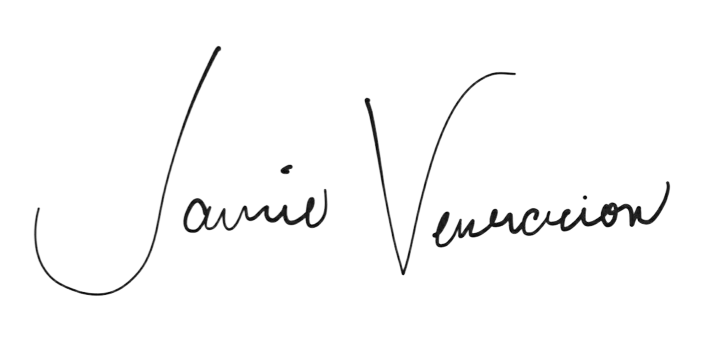 Jamie Veneracion